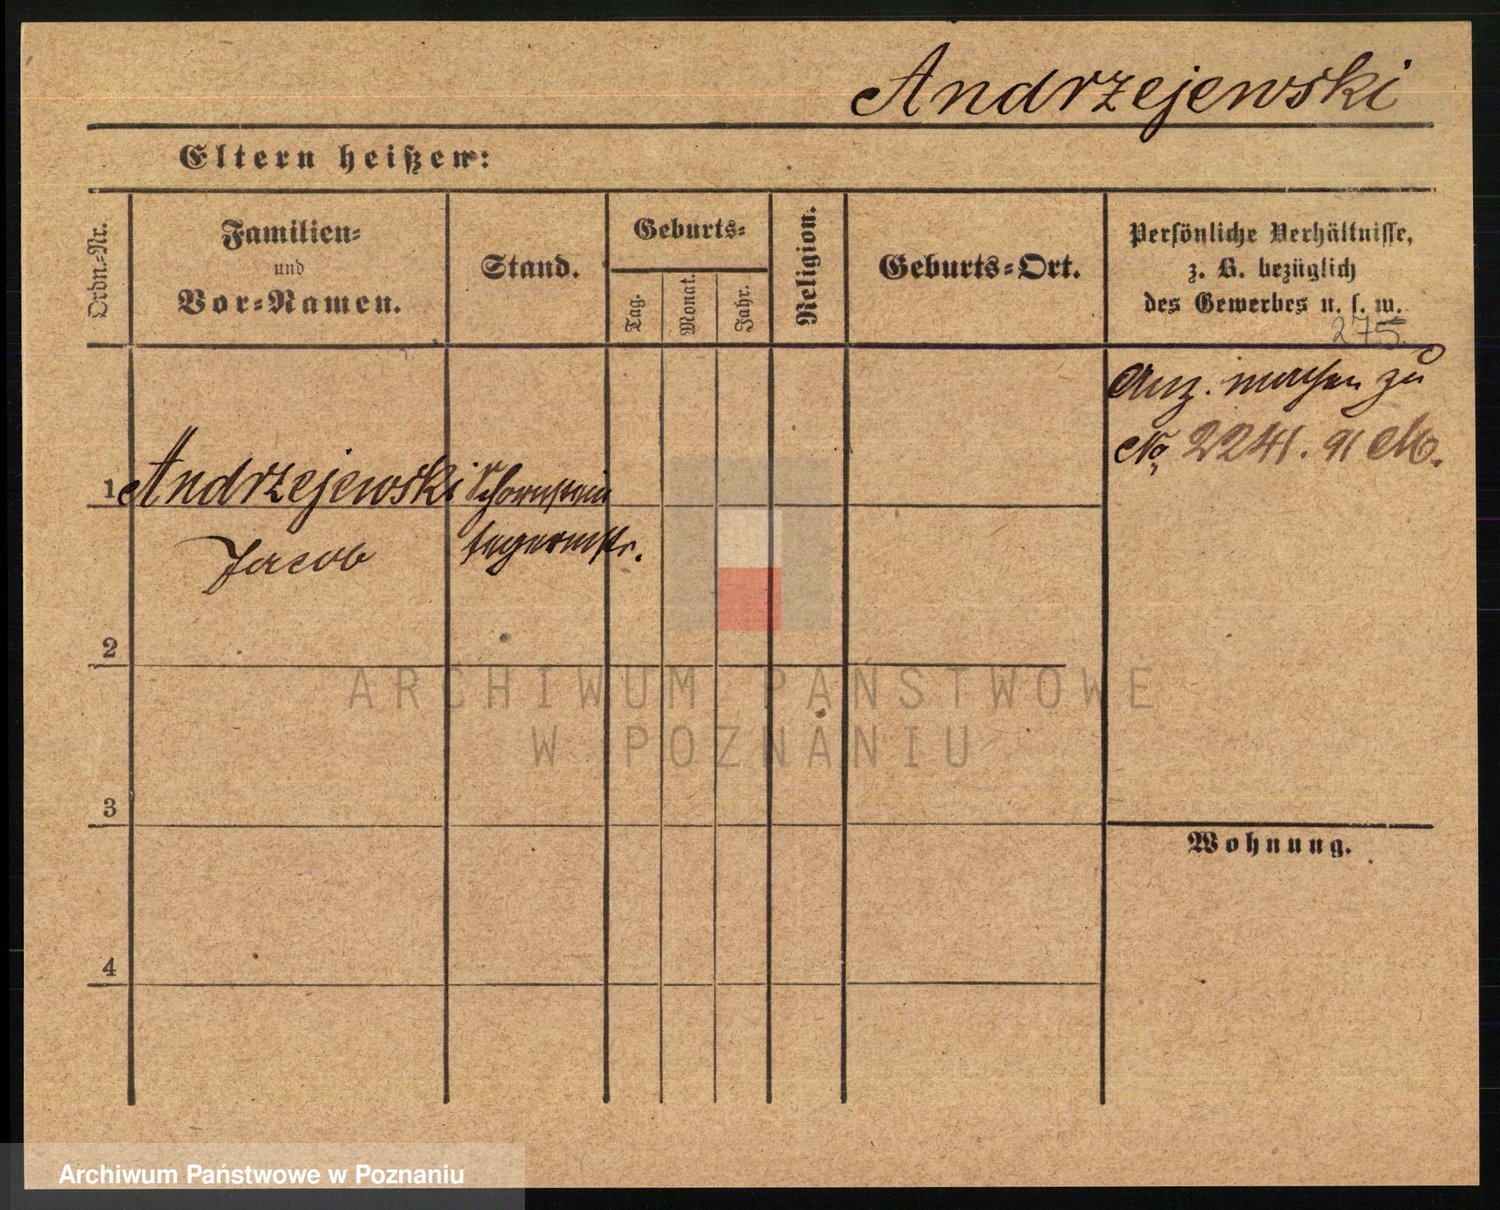 Andrzejewski
Eltern heißen:
Ordn.-Nr.
Familien-
und
Vor-Namen.
Stand.
Geburts-
Tag.
Monat.
Jahr.
Religion.
Geburts-Ort.
Persönliche Verhältnisse,
z. B. bezüglich
des Gewerbes u. s. w.
275
Anz. machen zu
No 2241. 91 M.
1 Andrzejewski Schornstein
Jacob fegermstr.
2
ARCHIWUM PAŃSTWOWE
W POZNANIU
3
Wohnung.
4
Archiwum Państwowe w Poznaniu